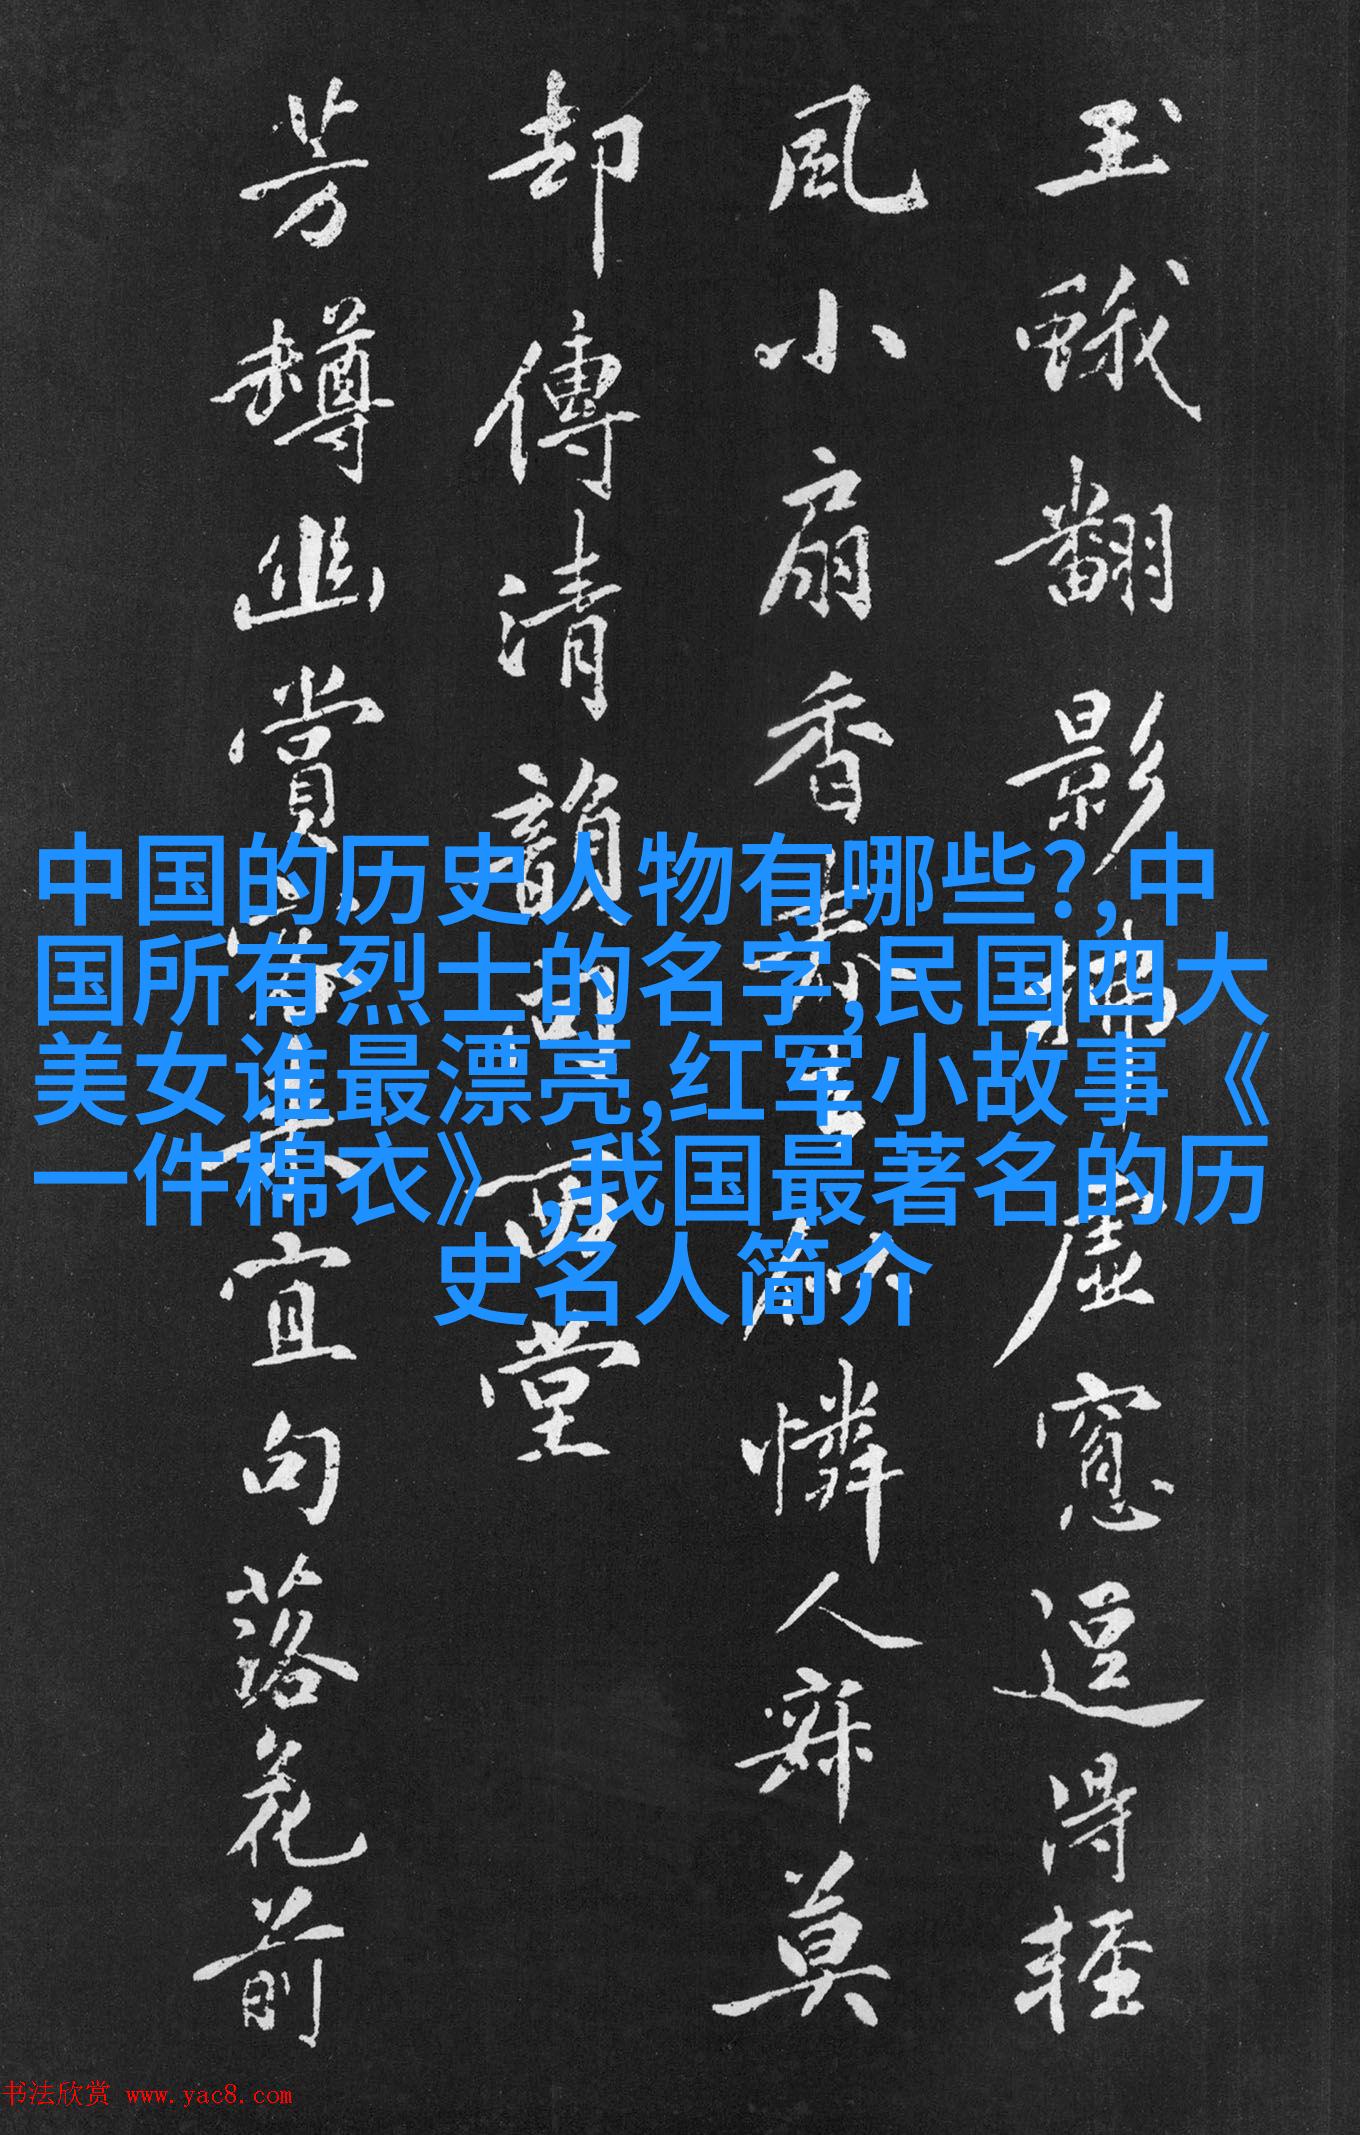 玉蛾翻影拂虛窓逗得輕
風小扇香憐人寐莫
却傳清韻向西堂
芳樽幽賞宜句落花前
中国的历史人物有哪些?,中
国所有烈士的名字,民国四大
美女谁最漂亮,红军小故事《
一件棉衣》,我国最著名的历
史名人简介
书法欣赏 www.yac8.com